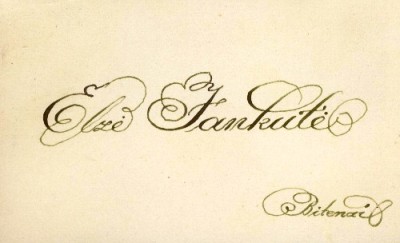 Elzė Jankutė
Bitėnai